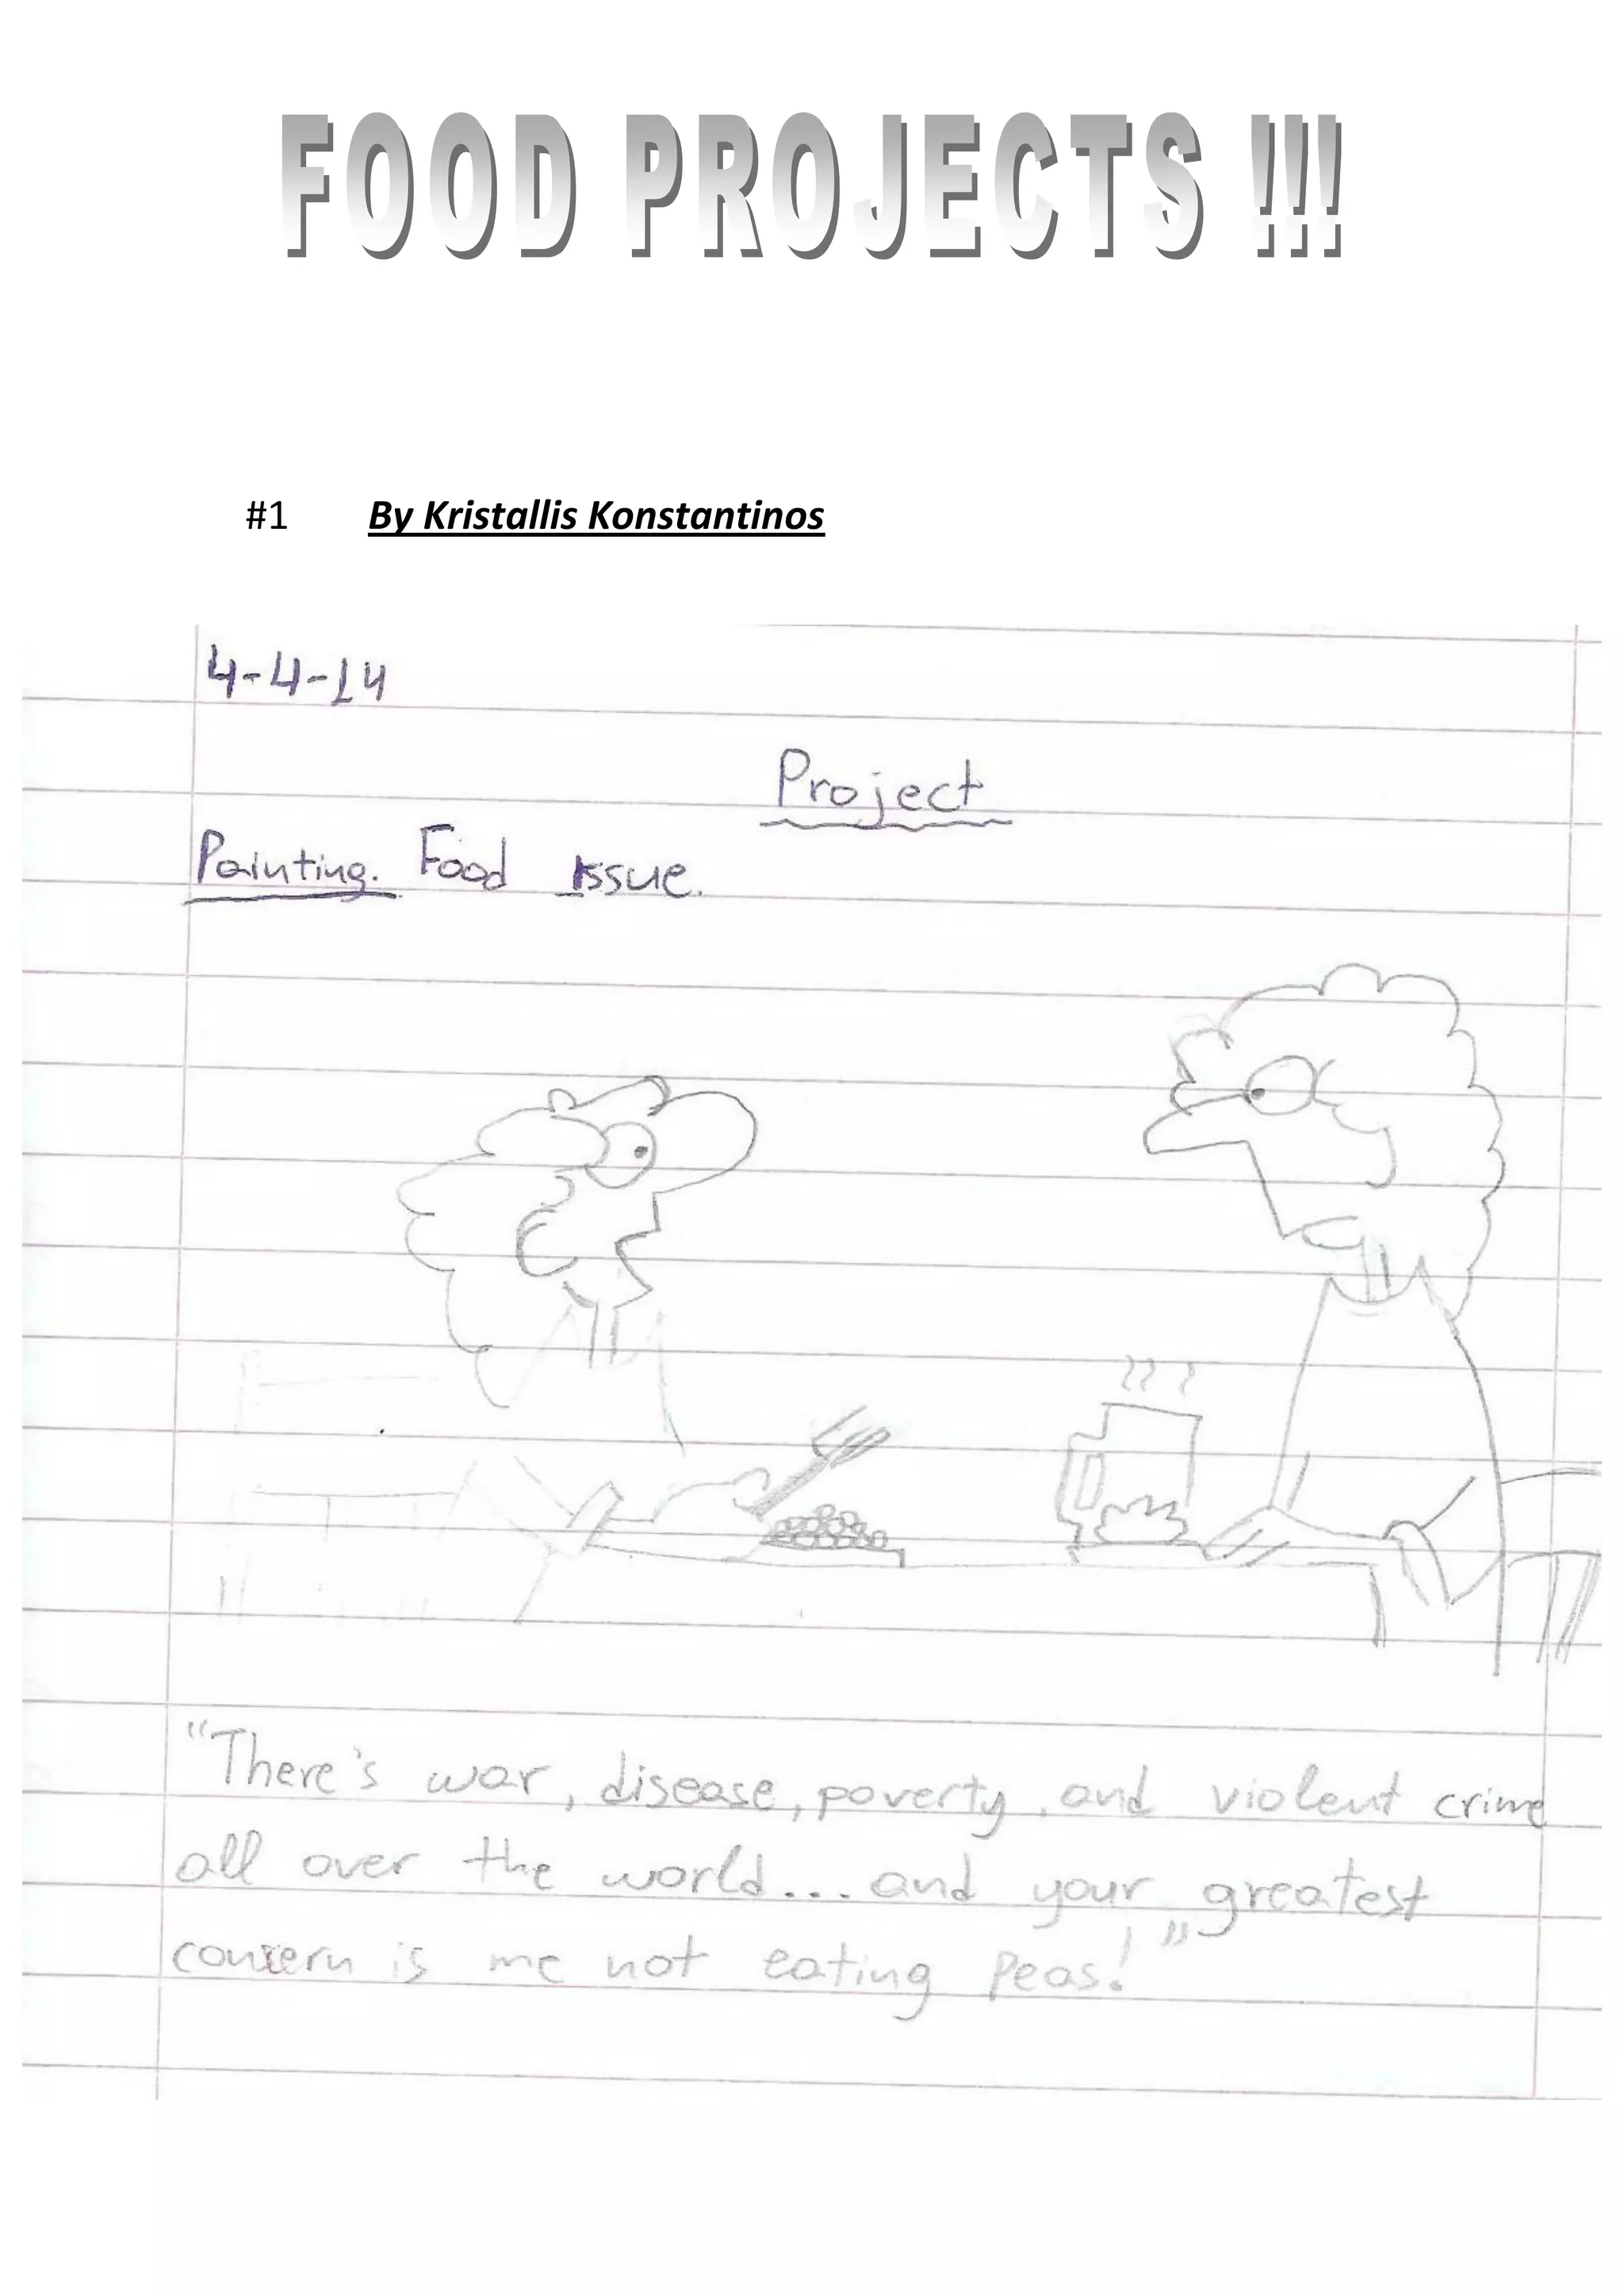 FOOD PROJECTS !!!
#1 By Kristallis Konstantinos
4-4-14
Project
Painting. Food Issue.
"There's war, disease, poverty, and violent crime
all over the world... and your greatest
concern is me not eating peas!"